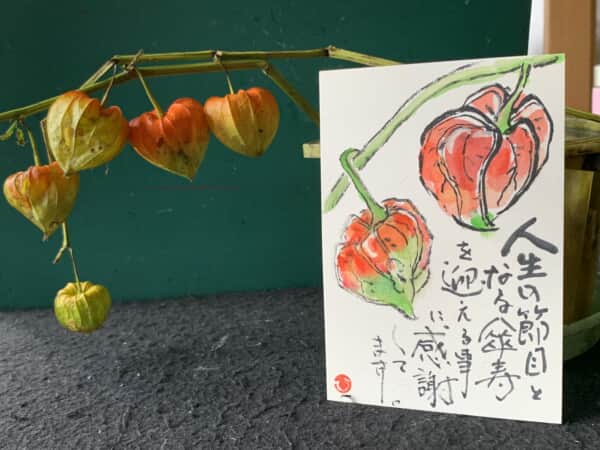 人生の節目と
なる傘寿
を迎える事
に感謝
してい
ます
ひ